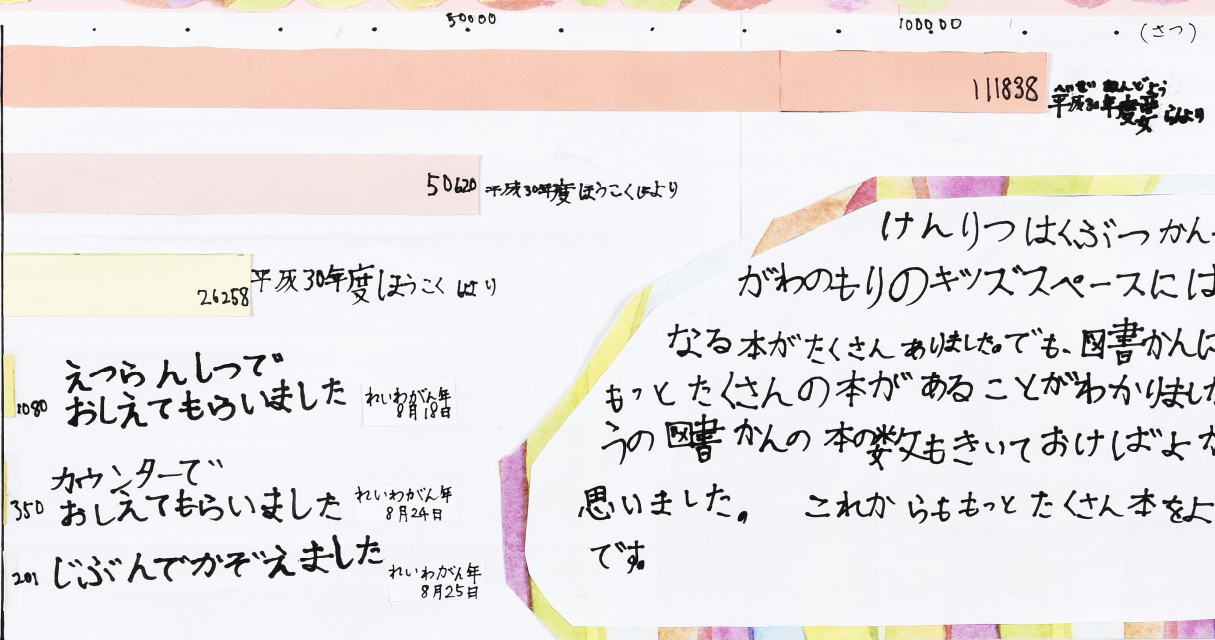 50000
100000
(さつ)
111838
平成30年度
より
50620
平成30年度ほうこくしょより
26258
平成30年度ほうこくしょより
1080
えつらんしつで
おしえてもらいました
れいわがん年
8月18日
350
カウンターで
おしえてもらいました
れいわがん年
8月24日
201
じぶんでかぞえました
れいわがん年
8月25日
けんりつはくぶつかん
がわのもりのキッズスペースには
なる本がたくさんありました。でも、図書かんに
もっとたくさんの本があることがわかりました
うの図書かんの本の数もきいておけばよ
思いました。 これからももっとたくさん本をよ
です。